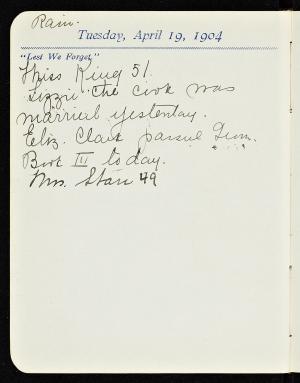 Rain.
Tuesday, April 19, 1904
"Lest We Forget."
Miss King 51.
Lizzie the cook was
married yesterday.
Eliz. Clark passed Geom.
Book III today.
Mrs. Starr 49